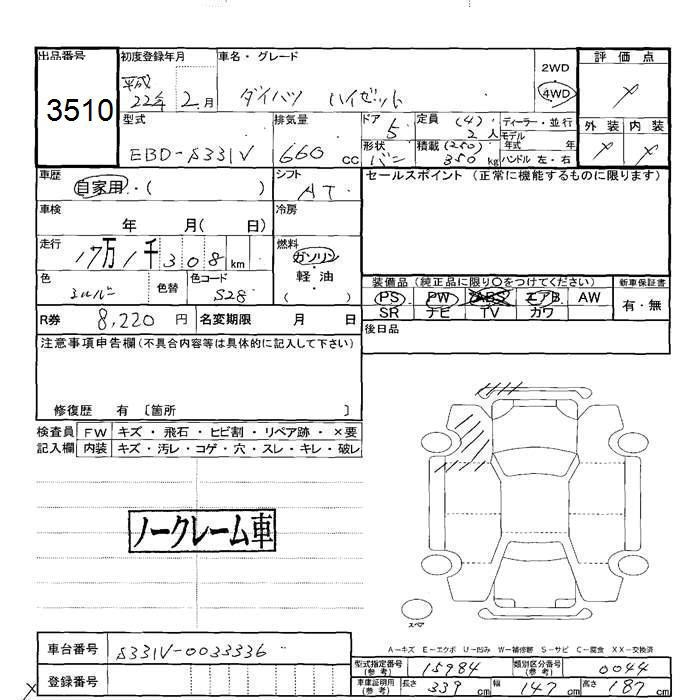 出品番号
3510
初度登録年月
平成
22年 2月
車名・グレード
ダイハツ ハイゼット
2WD
4WD
評価点
×
外装 内装
× ×
型式
EBD-S331V
排気量
660 cc
ドア
5
形状
バン
定員 (4)
2人
積載 (250)
350 kg
ディーラー・並行
モデル
年式 年
ハンドル 左・右
車歴
自家用・( )
シフト
AT
セールスポイント (正常に機能するものに限ります)
車検
年 月( 日)
冷房
走行
17万1千308 km
燃料
ガソリン
軽・油
( )
色
シルバー
色替
色コード
S28
装備品 (純正品に限り○をつけてください)
PS PW ABS エアB AW
SR ナビ TV カワ
新車保証書
有・無
R券 8,220 円
名変期限 月 日
後日品
注意事項申告欄(不具合内容等は具体的に記入して下さい)
修復歴 有 〔箇所 〕
検査員 FW キズ・飛石・ヒビ割・リペア跡・×要
記入欄 内装 キズ・汚レ・コゲ・穴・スレ・キレ・破レ
ノークレーム車
スペア
A-キズ E-エクボ U-凹み W-補修跡 S-サビ C-腐食 XX-交換済
車台番号 S331V-0033336
登録番号
型式指定番号
(参考)
15984
類別区分番号
(参考)
0044
車庫証明用
(参考)
長さ 339 cm 幅 147 cm 高さ 187 cm
×